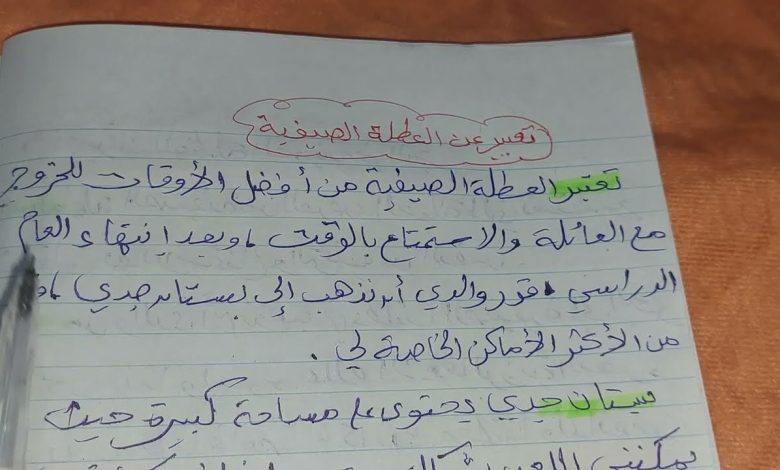 تعبير عن العطلة الصيفية
تعتبر العطلة الصيفية من أفضل الأوقات للخروج
مع العائلة والاستمتاع بالوقت، وبعد انتهاء العام
الدراسي، قرر والدي أن نذهب إلى بستان جدي،
من الأكثر الأماكن الخاصة لي.
بستان جدي يحتوى على مساحة كبيرة حيث
يمكنني اللعب